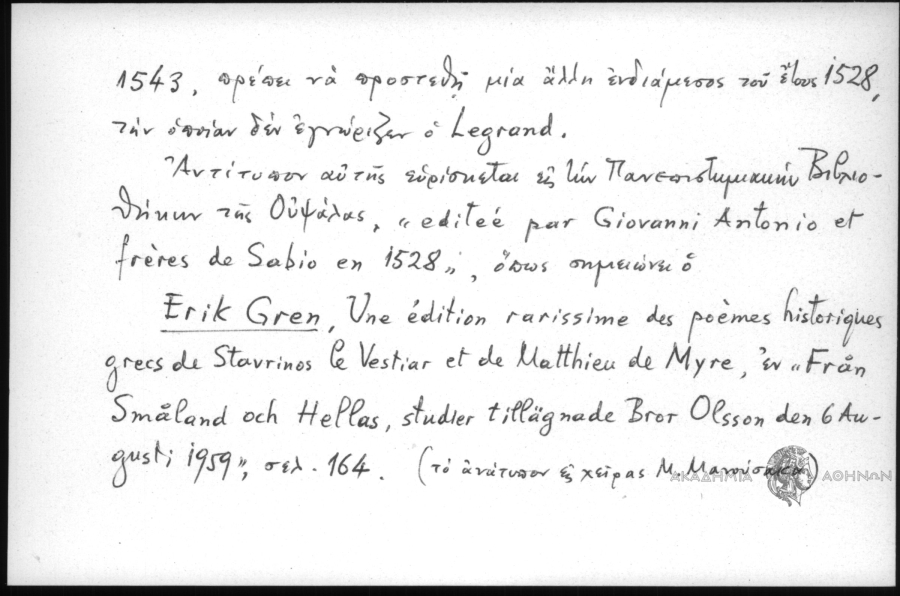 1543, πρέπει νὰ προστεθῇ μία ἄλλη ἐνδιάμεσος τοῦ ἔτους 1528,
τὴν ὁποίαν δὲν ἐγνώριζεν ὁ Legrand.
Ἀντίτυπον αὐτῆς εὑρίσκεται εἰς τὴν Πανεπιστημιακὴν Βιβλιο-
θήκην τῆς Οὐψάλας, „editeé par Giovanni Antonio et
frères de Sabio en 1528„, ὅπως σημειώνει ὁ
Erik Gren, Une édition rarissime des poèmes historiques
grecs de Stavrinos le Vestiar et de Matthieu de Myre, ἐν „Från
Småland och Hellas, studier tillägnade Bror Olsson den 6 Au-
gusti 1959„, σελ. 164. (τὸ ἀνάτυπον εἰς χεῖρας Μ. Μανούσακα)
ΑΚΑΔΗΜΙΑ ΑΘΗΝΩΝ